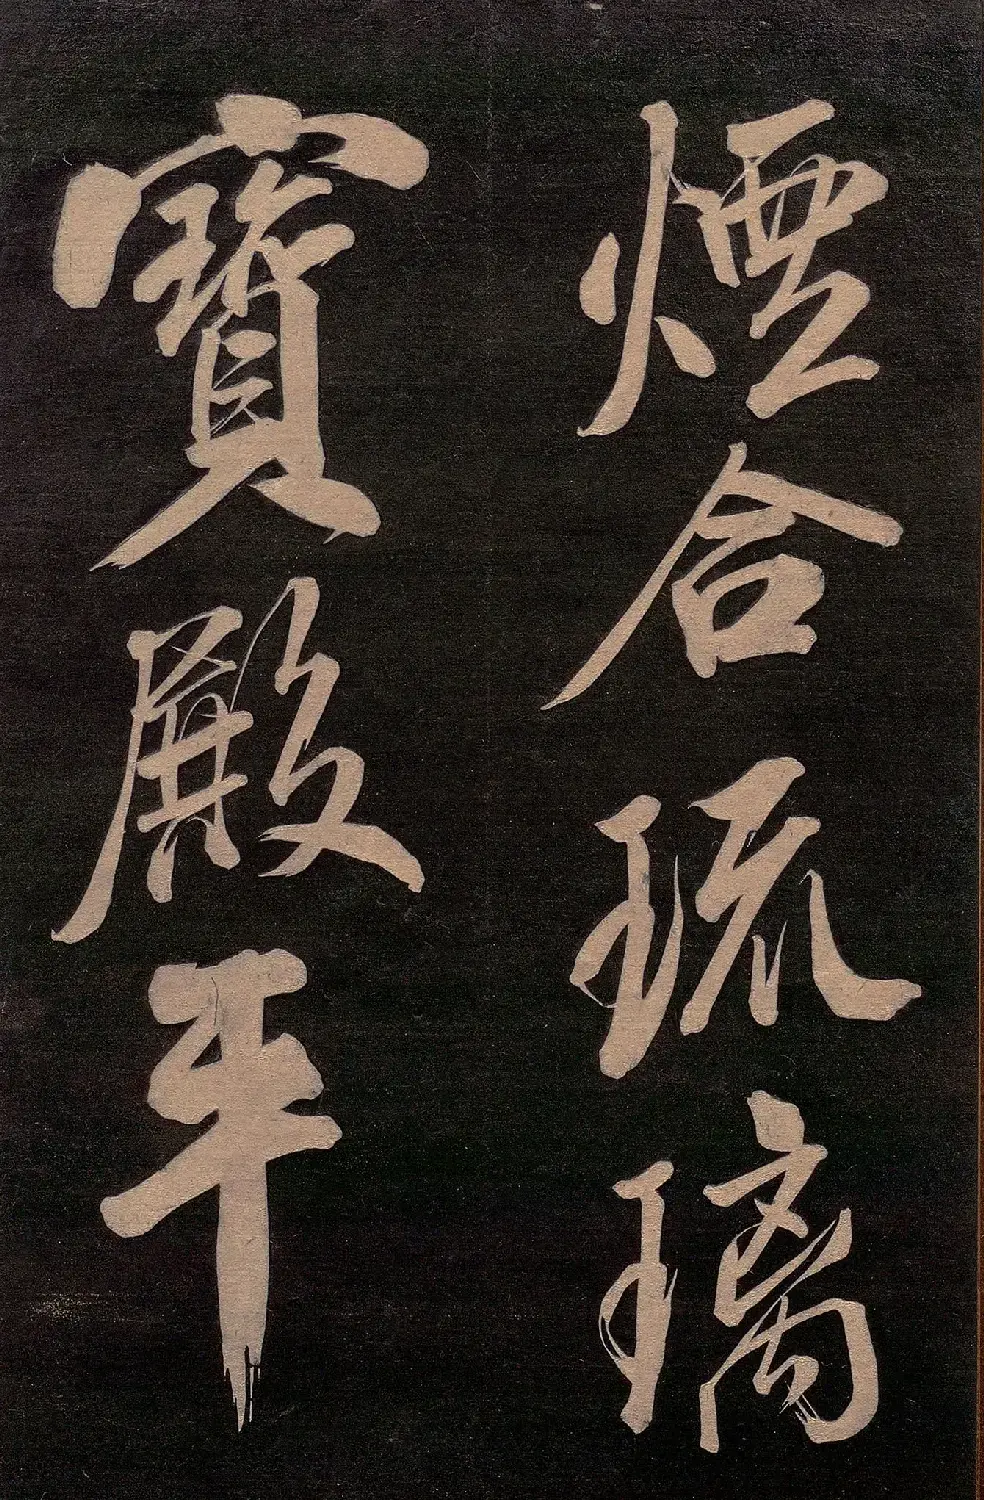 煙合琉璃
寶殿平